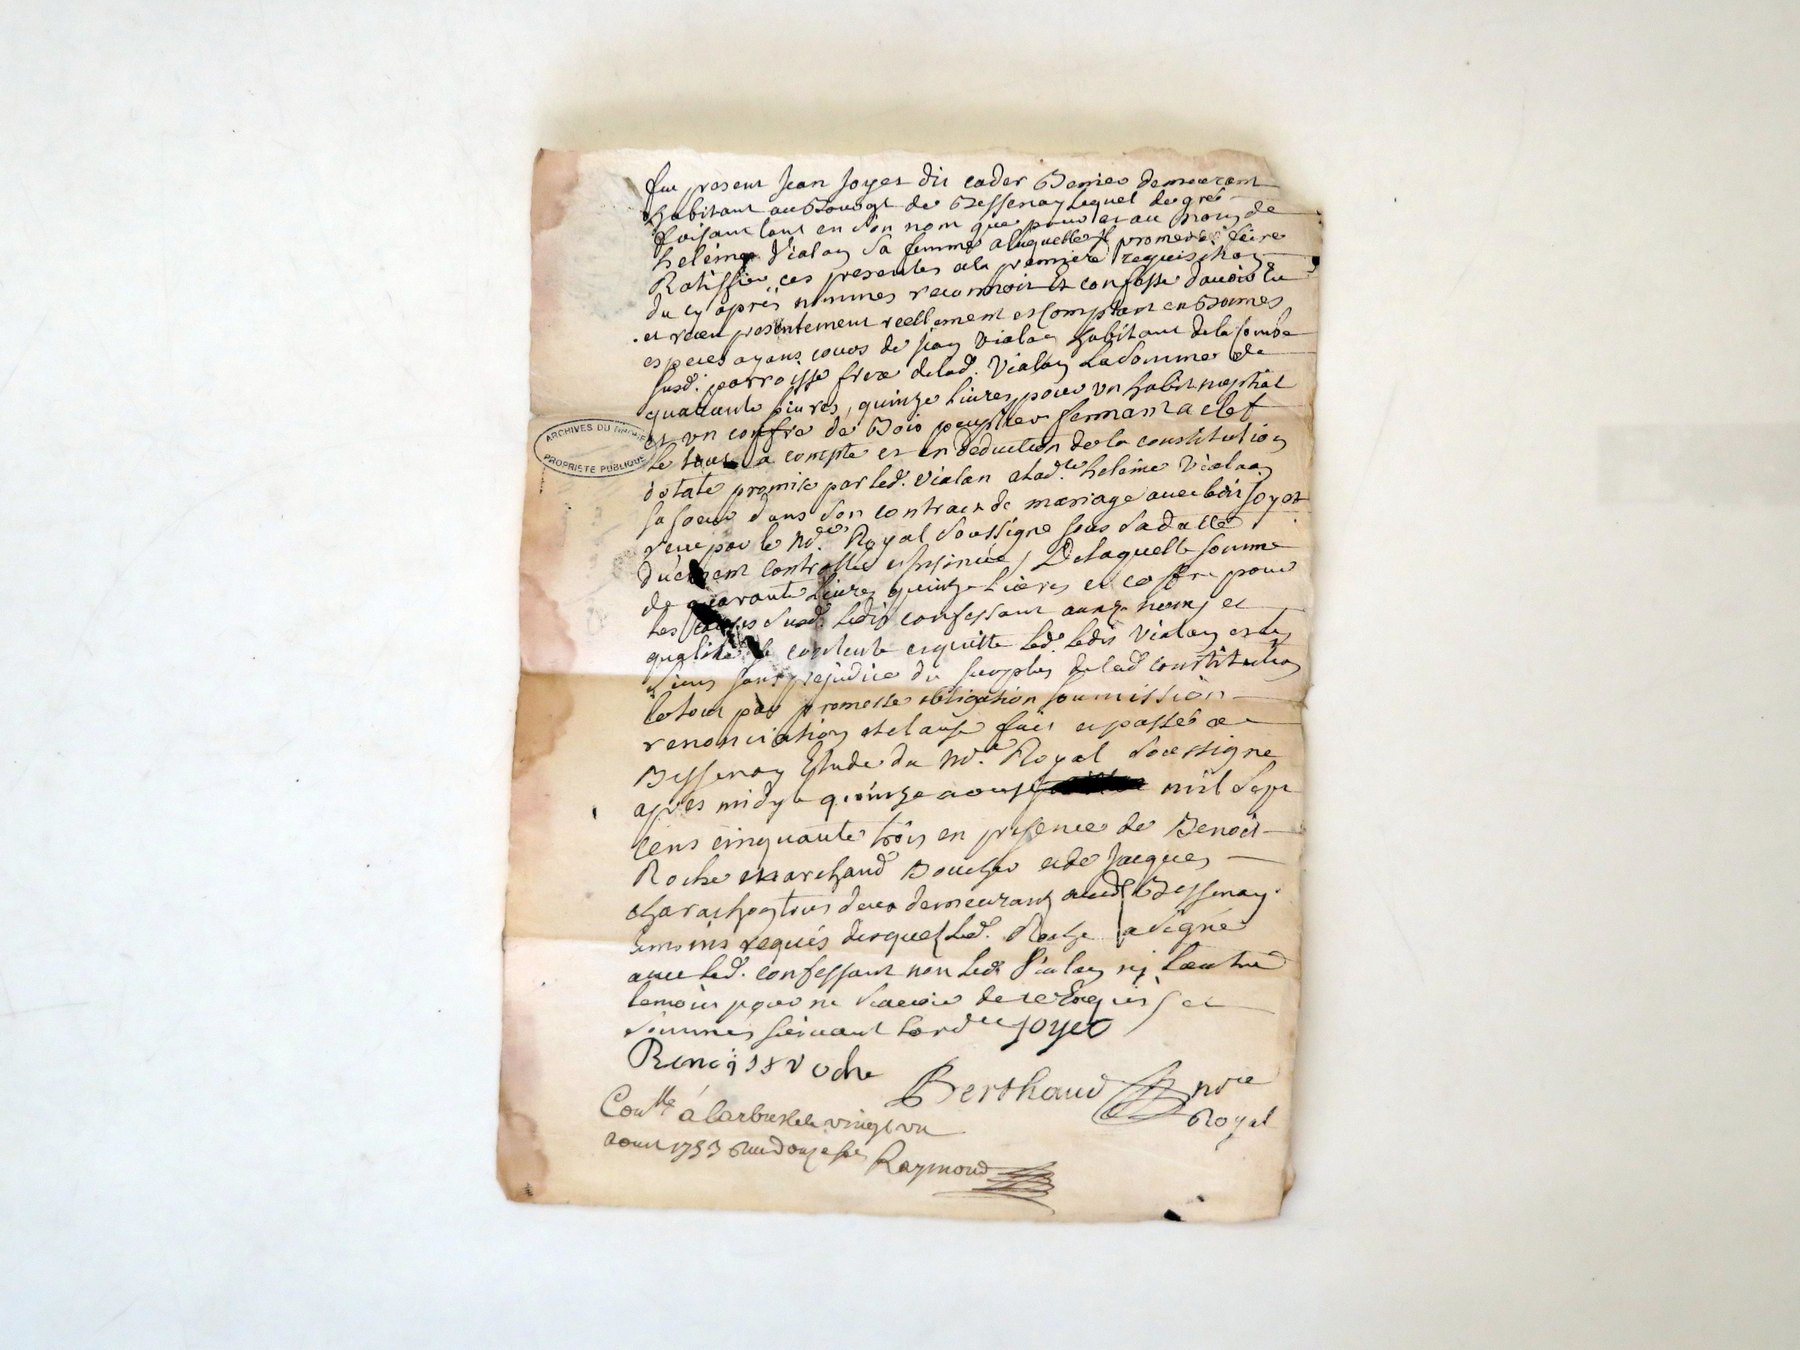 fut present Jean Joyet dit cadet demeurant
habitant au Bourgt de Bessenay Lequel de gré
faisant tant en son nom que pour et au nom de
heleine Vialon sa femme a laquelle il promet faire
Ratiffier ces presentes a la premiere requisition
du cy aprés nommés reconnoit et confesse d'avoir Eu
et receu presentement reellement et comptant en Bonnes
especes ayans cours de jean Vialon habitant de la Combe
susd. parroisse frere de lad. Vialon La somme de
quarante livres, quinze livres pour un habit nuptial
et un coffre de Bois fermant a clef
le tout a compte et en deduction de la constitution
dotale promise par led. Vialon a lad.te heleine Vialon
sa soeur dans son contract de mariage avec led. Joyet
receu par le No.re Royal soussigné sous sa datte
duement Controllé et insinué / De laquelle somme
de quarante livres quinze livres et coffre pour
les causes susd. Ledit confessant auxd. noms et
qualités se contente et quitte led. Vialon et les
siens sans prejudice du surplus de lad constitution
le tout par promesse obligation soumission
renonciation et clause fait et passé a
Bessenay Etude du No.re Royal soussigné
apres midy le quinze aoust mil sept
cens cinquante trois en presence de Benoit
Roche marchand Boucher et de Jacques
tous deux demeurant aud. Bessenay
temoins requis desquels led. Roche a signé
avec led. confessant non led Vialon ni l'autre
temoin pour ne scavoir de ce Enquis et
sommés suivant l'ord.ce Joyet
Benoist roche
Berthaud no.re
Royal
Con.lle á Larbresle le vingt un
aout 1753 Raymond
ARCHIVES DU RHONE
PROPRIETE PUBLIQUE